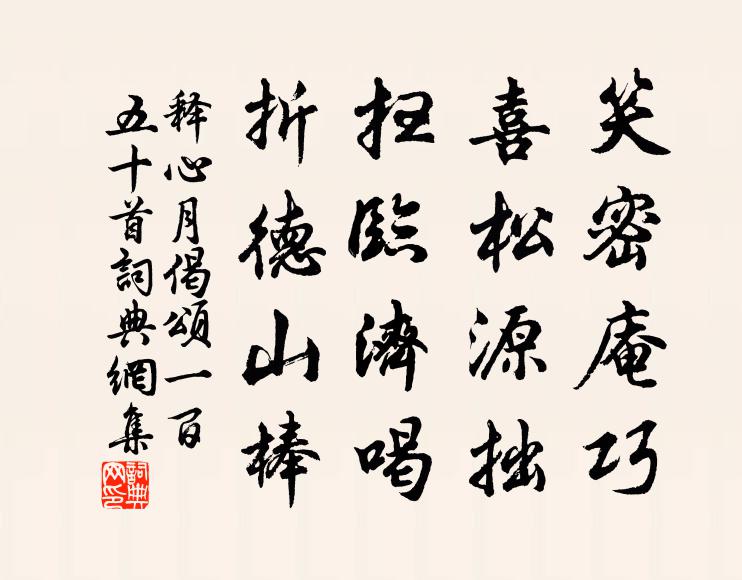 笑密庵巧
喜松源拙
扭臨濟喝
折德山棒
释心月偈頌一百
五十首詞典網集
詞典
网印